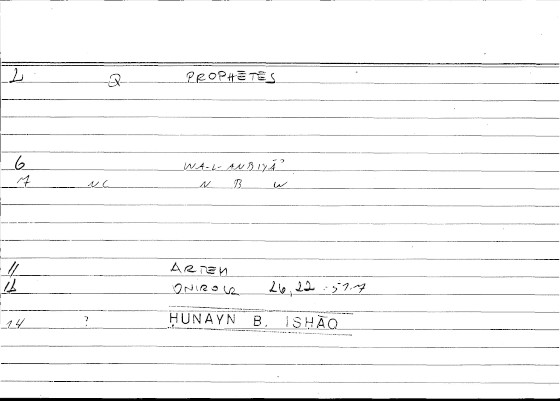 L Q PROPHĒTĒS
6 WA-L-ANBIYĀʾ
7 NC N B W
11 ARTEM
12 ONIROCR 26,22 : 51.7
14 ? ḤUNAYN B. ISḤĀQ